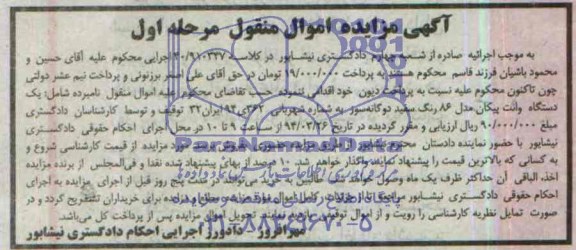 آگهی مزایده اموال منقول مرحله اول
به موجب اجرائیه صادره از شعبه چهارم دادگستری نیشابور در کلاسه ۹۱۰۳۲۷/۲۰ اجرایی محکوم علیه آقای حسین و
محمود باشیان فرزند قاسم محکوم هستند به پرداخت ۱۹/۰۰۰/۰۰۰ تومان در حق آقای علی اصغر برزنونی و پرداخت نیم عشر دولتی
چون تاکنون محکوم علیه نسبت به پرداخت دیون خود اقدامی ننموده حسب تقاضای محکوم علیه اموال منقول نامبرده شامل: یک
دستگاه وانت پیکان مدل ۸۶ رنگ سفید دوگانه‌سوز به شماره شهربانی ایران ۳۲ توقیف و توسط کارشناسان دادگستری
مبلغ ۹۰/۰۰۰/۰۰۰ ریال ارزیابی و مقرر گردیده در تاریخ ۹۴/۰۳/۲۶ از ساعت ۹ تا ۱۰ در محل اجرای احکام حقوقی دادگستری
نیشابور با حضور نماینده دادستان محترم مزایده از قیمت کارشناسی شروع و
به کسانی که بالاترین قیمت را پیشنهاد نمایند واگذار خواهد شد. ۱۰ درصد از بهای پیشنهاد شده نقدا و فی‌المجلس از برنده مزایده
اخذ، الباقی آن حداکثر ظرف یک ماه وصول خواهد شد طالبین به خرید می‌توانند در مدت پنج روز قبل از اجرای مزایده به اجرای
احکام حقوقی دادگستری نیشابور برای خریداران تشریح گردد و در
صورت تمایل نظریه کارشناسی را رویت و از اموال توقیفی بازدید نمایند. تحویل اموال مزایده پس از پرداخت کل می‌باشد.
مهرافروز - دادورز اجرایی احکام دادگستری نیشابور
ParsNamadData